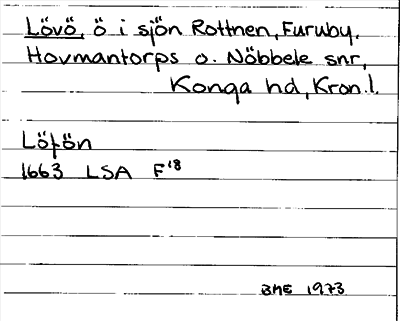 Lövö, ö i sjön Rottnen, Furuby.
Hovmantorps o. Nöbbele snr,
Konga hd, Kron. l.
Löfön
1663 LSA F18
BME 1973